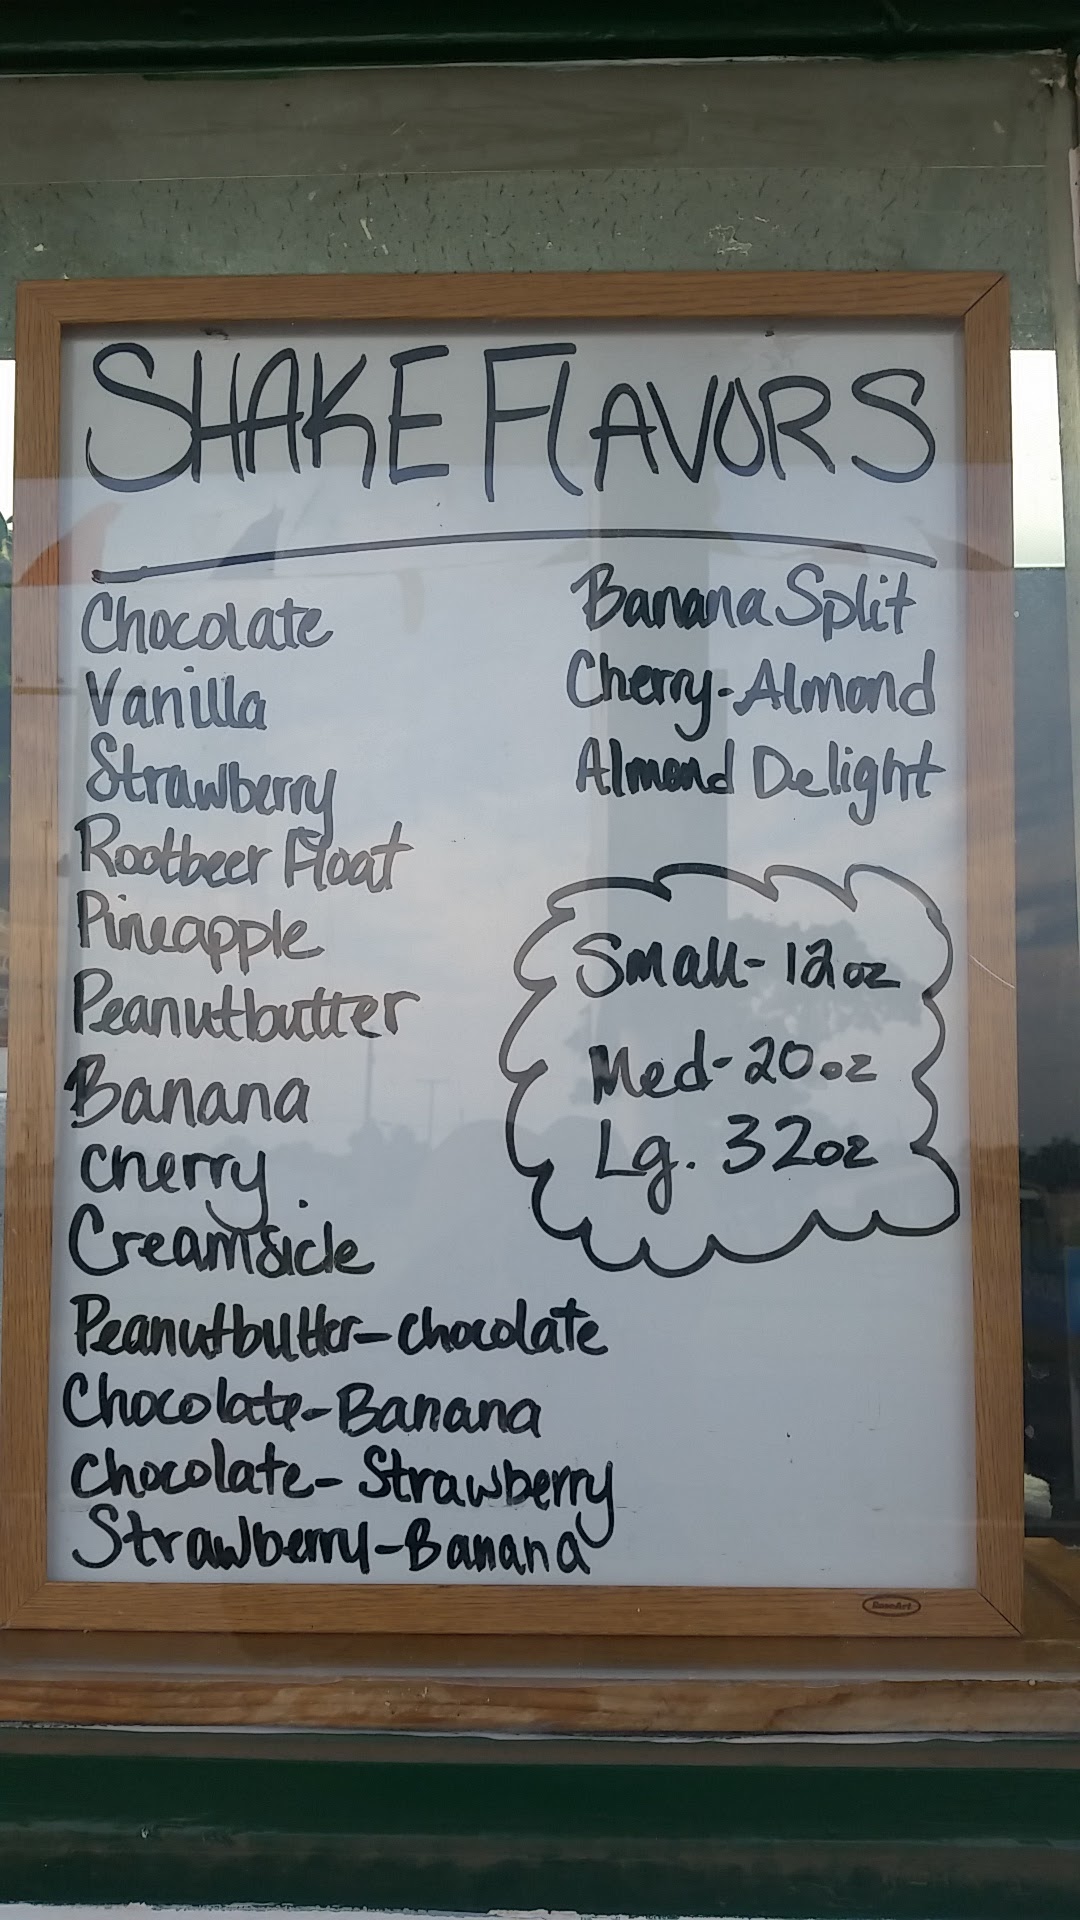 SHAKE FLAVORS
Chocolate
Vanilla
Strawberry
Rootbeer Float
Pineapple
Peanutbutter
Banana
Cherry
Creamsicle
Peanutbutter-chocolate
Chocolate-Banana
Chocolate-Strawberry
Strawberry-Banana
Banana Split
Cherry-Almond
Almond Delight
Small-12oz
Med-20oz
Lg. 32oz
RoseArt